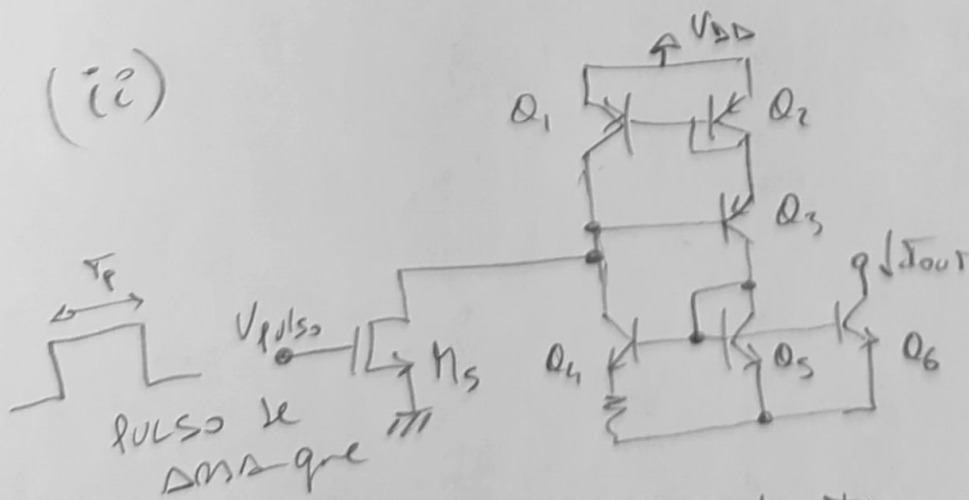 (ii)
VDD
Q1
Q2
Q3
IOUT
TP
Vpulso
MS
Q4
Q5
Q6
PULSO de
ARRAnque